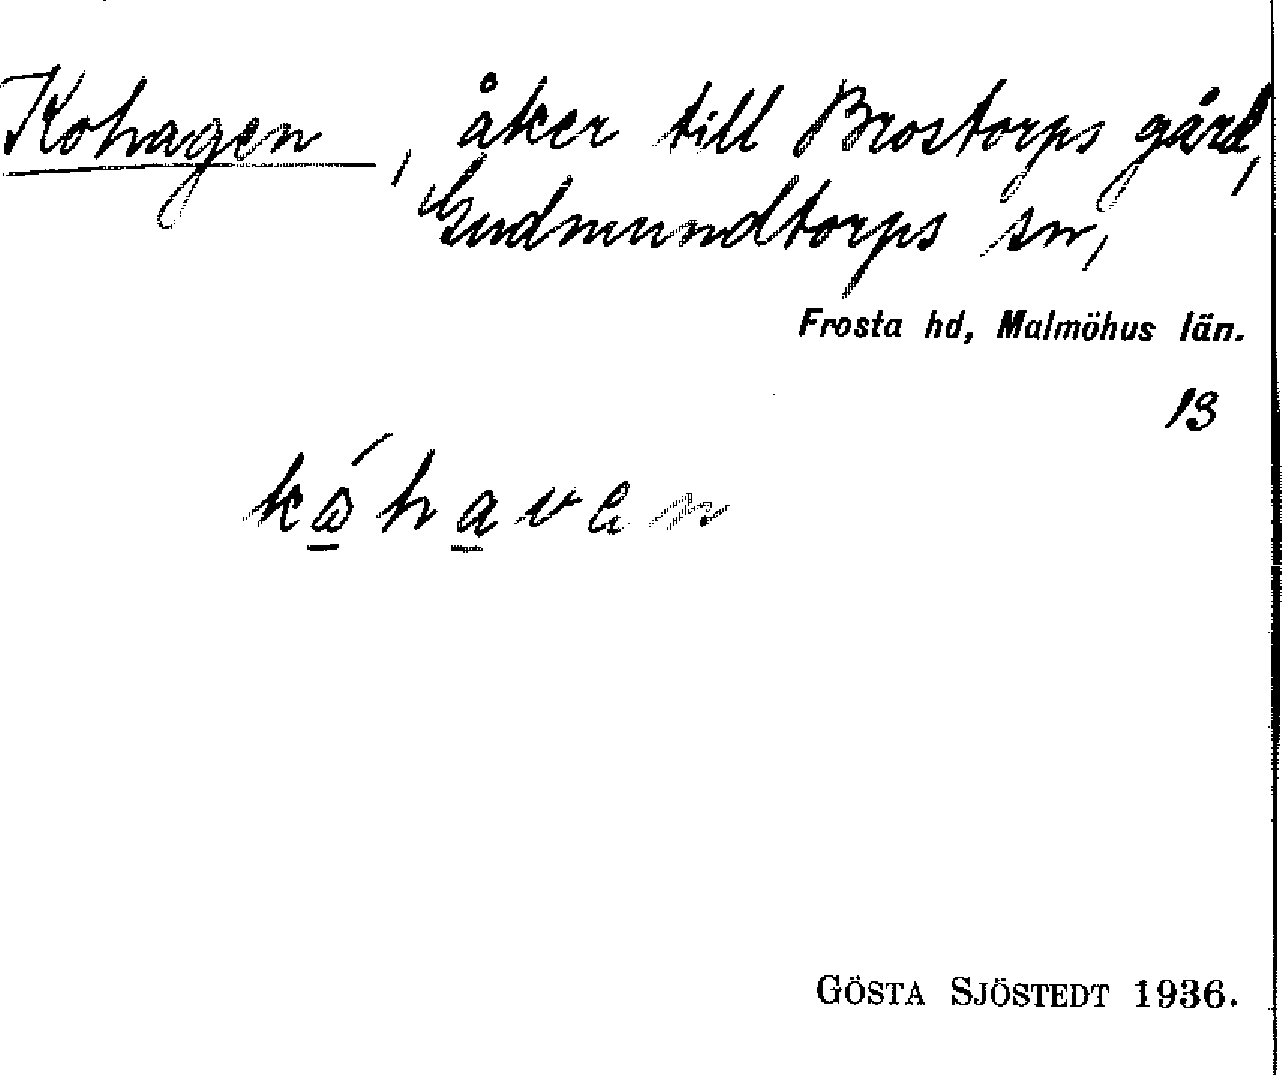 Kohagen, åker till Brostorps gård,
Gudmundtorps sn,
Frosta hd, Malmöhus län.
13
kóhaven
GÖSTA SJÖSTEDT 1936.